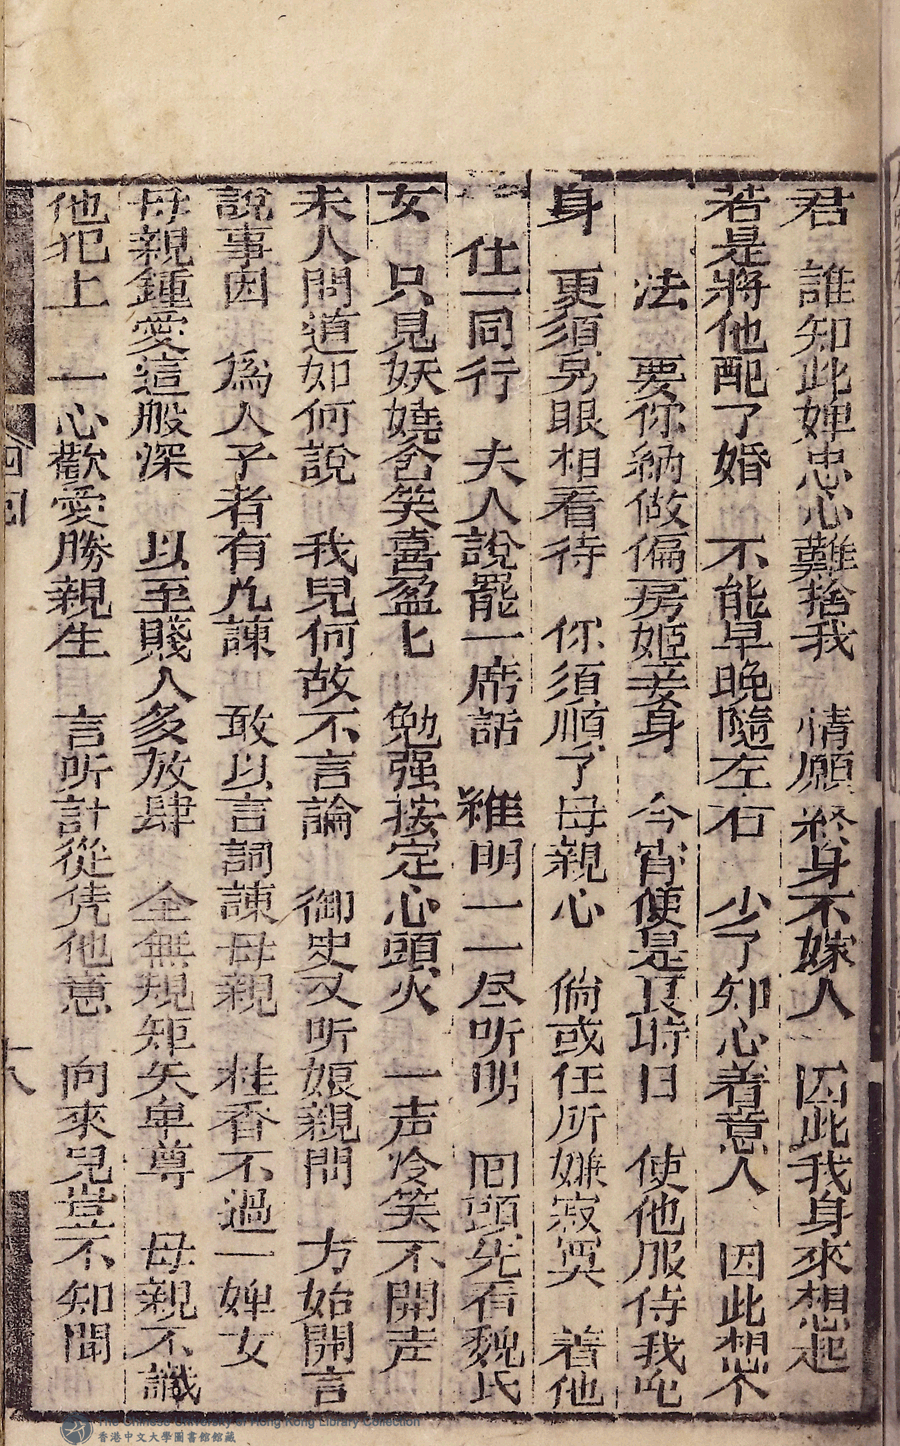 君　誰知此婢忠心難捨我　情願終身不嫁人　因此我身來想起
若是將他配了婚　不能早晚隨左右　少了知心着意人　因此想个
法　要你納做偏房姬妾身　今宵便是良時日　使他服侍我
身　更須另眼相看待　你須順了母親心　倘或任所嫌寂寞　着他
仕一同行　夫人說罷一席話　維明一一尽听明　囘頭先看魏氏
女　只見妖嬈含笑喜盈匕　勉强按定心頭火　一声冷笑不開声
未人問道如何說　我兒何故不言論　御史又听娘親問　方始開言
說事因　爲人子者有凢諫　敢以言詞諫母親　桂香不過一婢女
母親鍾愛這般深　以至賤人多放肆　全無規矩失卑尊　母親不識
他犯上　一心歡愛勝親生　言听計從凭他意　向來兒豈不知聞
四囘
十八
The Chinese University of Hong Kong Library Collection
香港中文大學圖書館館藏